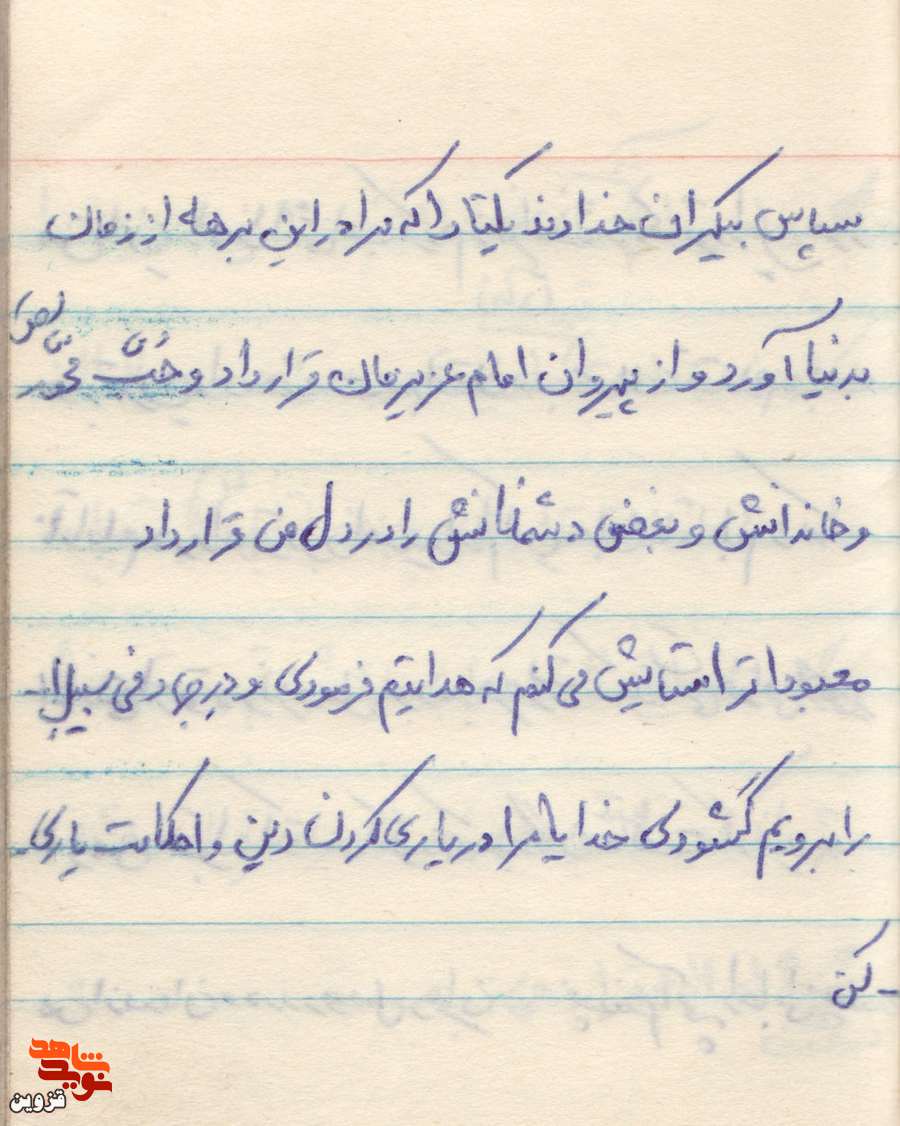 سپاس بیکران خداوند یکتا را که مرا در این برهه از زمان
بدنیا آورد و از پیروان امام عزیزمان قرار داد و حُبّ محمّد (ص)
و خاندانش و بغض دشمنانش را در دل من قرار داد
معبودا ترا ستایش می کنم که هدایتم فرمودی و در جهاد فی سبیل ا...
را برویم گشودی خدایا مرا در یاری کردن دین و احکامت یاری
- کن
نوید شاهد
قزوین